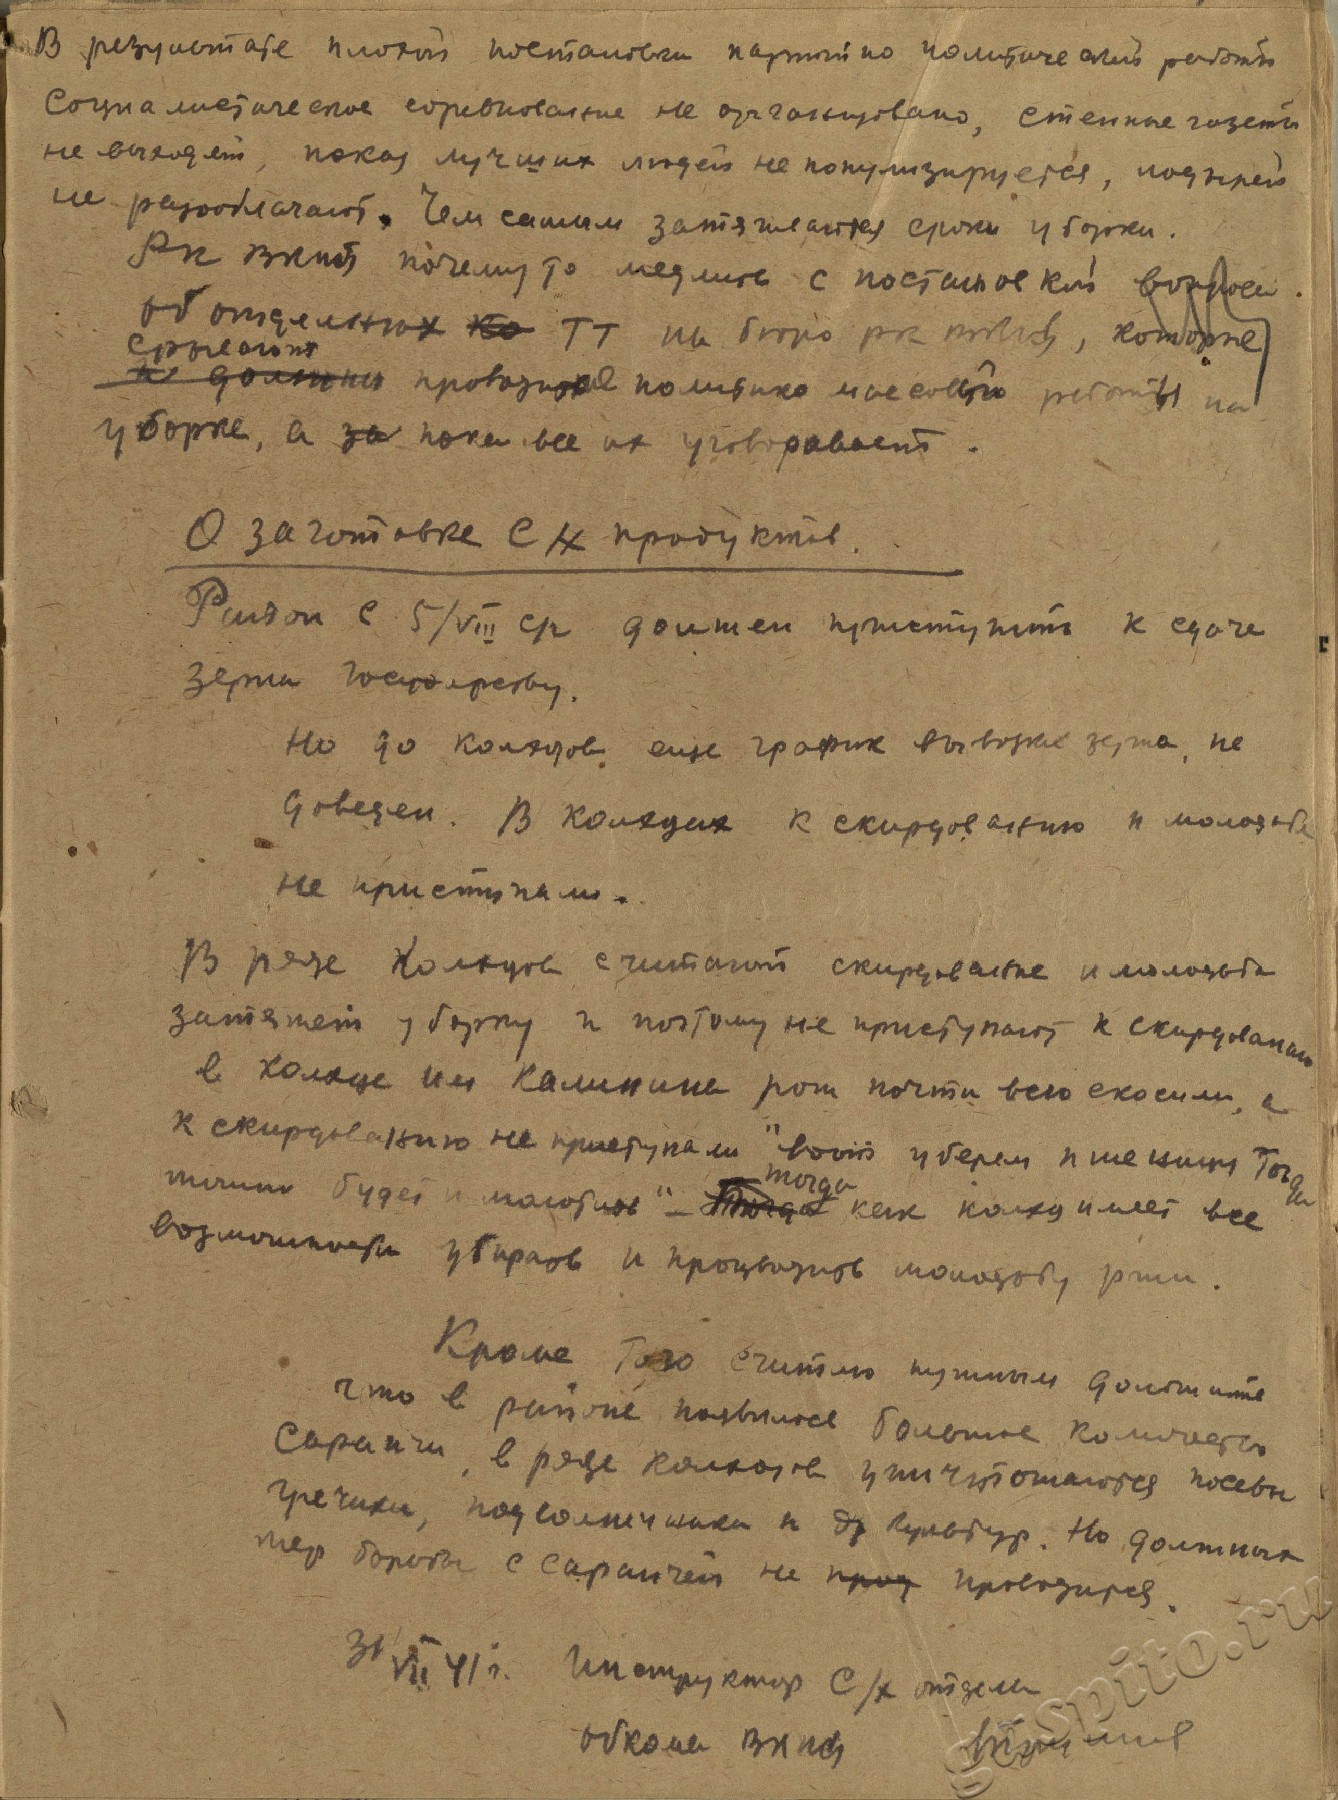 В результате плохой постановки партийно политической работы
Социалистическое соревнование не организовано, стенные газеты
не выходят, показ лучших людей не популизируется, лодырей
не разоблачают. Чем самым затягиваются сроки уборки.
РК ВКПб почему то медлит с постановкой вопроса
об отдельных ТТ на бюро РК ВКПб, которые
срывают
не должны проводимые политико массовой работы на
уборке, а за пока все их уговаривает.
О заготовке С/Х продуктов.
Район с 5/VIII ср должен приступить к сдаче
зерна государству.
Но до колхозов еще график вывозки зерна, не
доведен. В колхозах к скирдованию и молотьбе
не приступали.
В ряде колхозов считают скирдование и молотьба
затянет уборку и поэтому не приступают к скирдованию
в колхозе им Калинина рож почти всю скосили, а
к скирдованию не приступали "вот уберем пшеницу Тогда
начнем будет и молотить" – тогда как колхоз имеет все
возможности убирать и производить молотьбу ржи.
Кроме того считаю нужным доложить
что в районе появилось большое количество
Саранчи, в ряде колхозов уничтожаются посевы
гречихи, подсолнечника и др культур. Но должных
мер борьбы с саранчей не прод проводится.
31 VII 41 г. Инструктор С/х отдела
обкома ВКПб
gaspito.ru